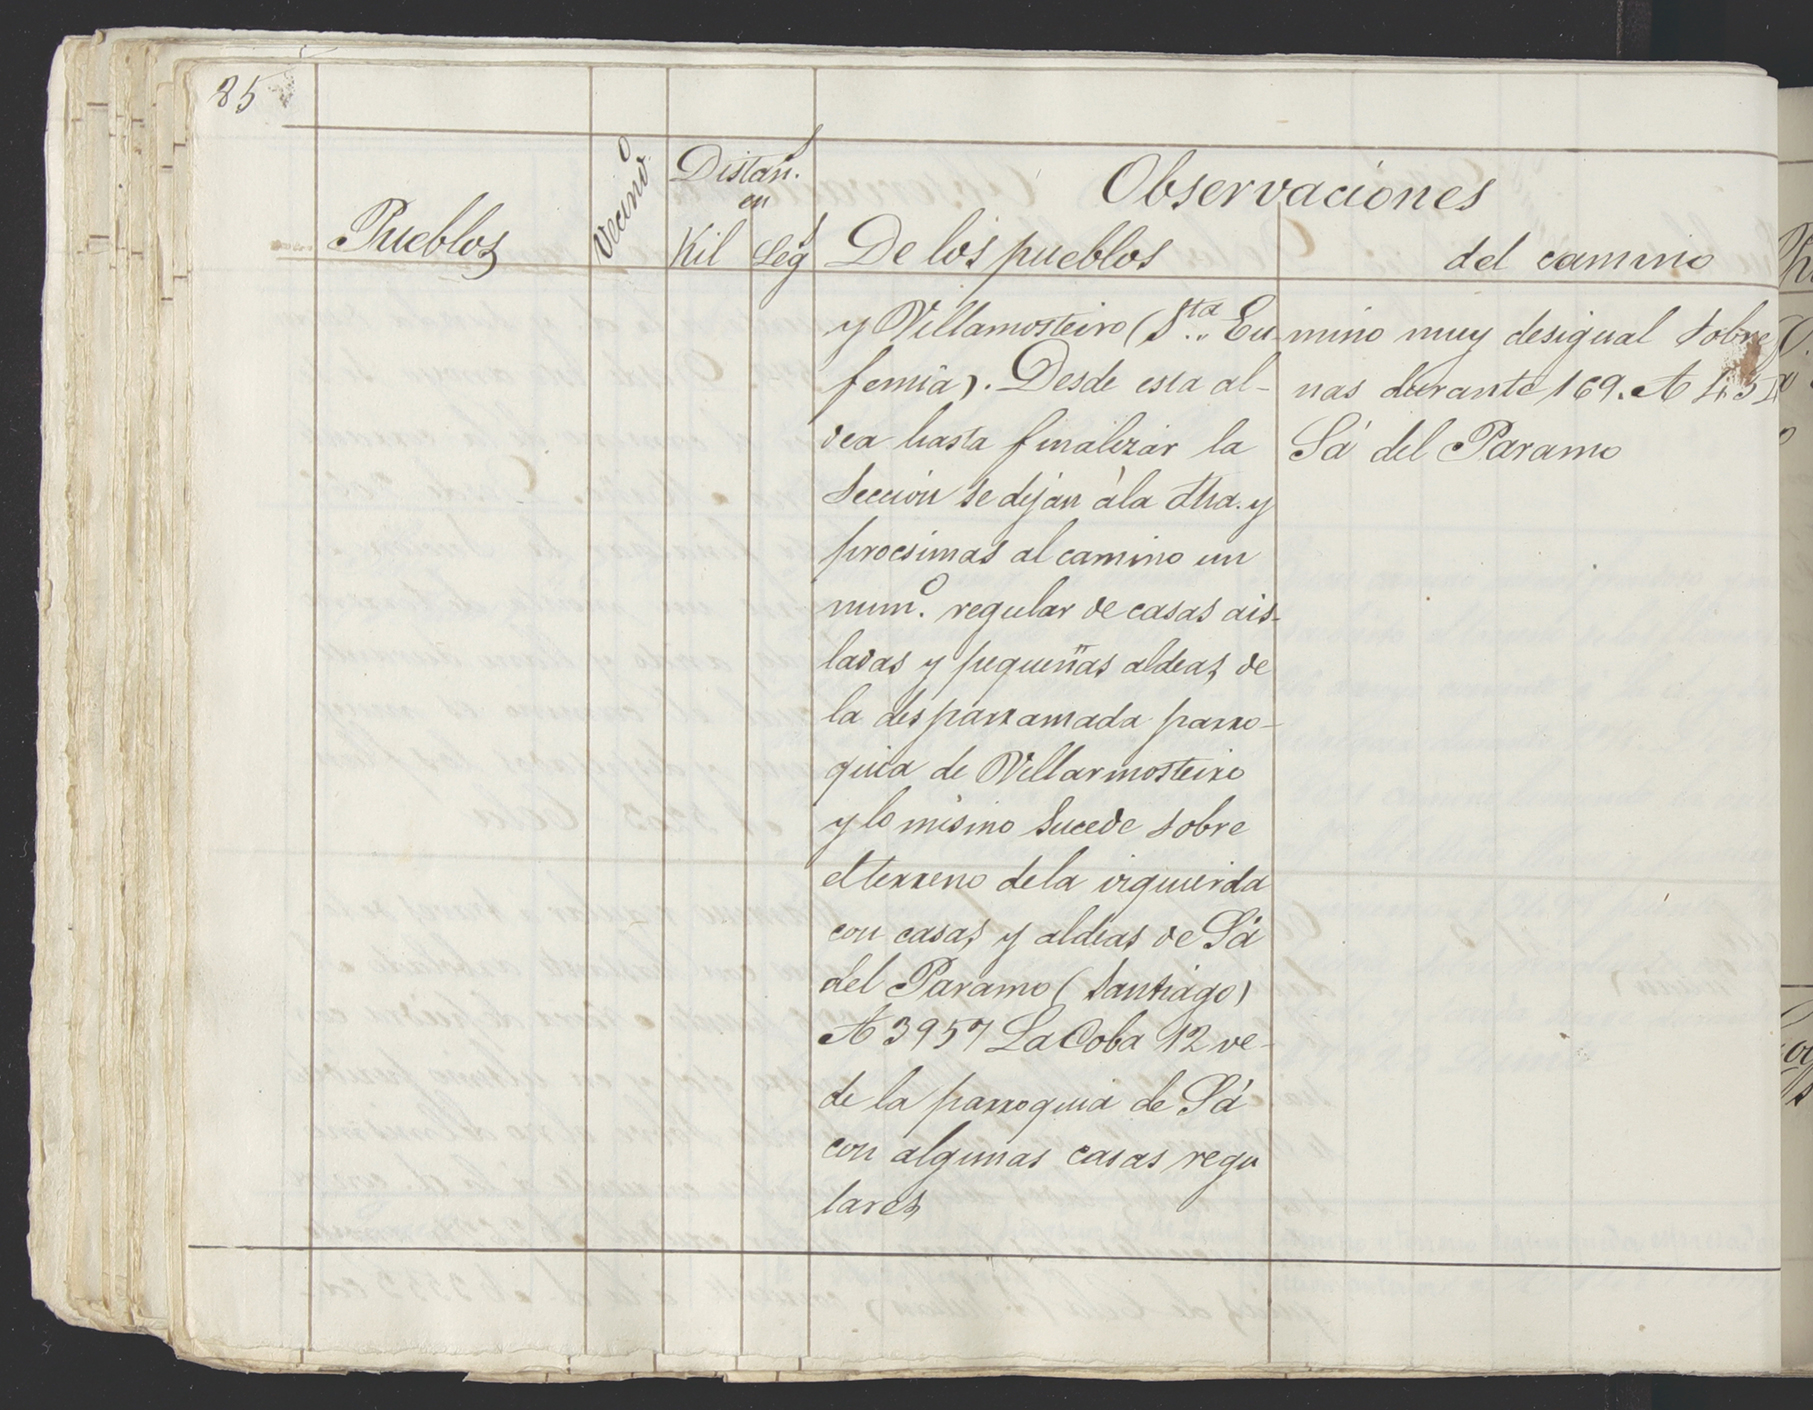 85
Pueblos
Vecind.º
Distan.ˢ
en
Kil
Leg.ˢ
Observaciones
De los pueblos
del camino
y Villamosteiro (S.ta Eu-
femia). Desde esta al-
dea hasta finalizar la
Seccion se dejan à la dha. y
procsimas al camino un
num.º regular de casas ais-
ladas y pequeñas aldeas de
la desparramada parro-
quia de Villarmosteiro
y lo mismo sucede sobre
el terreno de la izquierda
con casas y aldeas de Sá
del Paramo (Santiago)
A 3957 La Coba 12 ve-
de la parroquia de Sá
con algunas casas regu
lares
mino muy desigual sobre
nas durante 169. A
Sá del Paramo